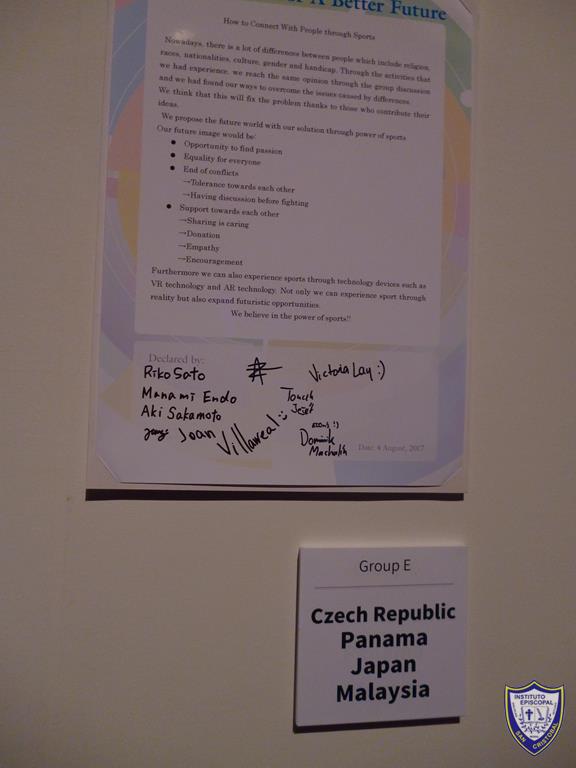 A Better Future
How to Connect With People through Sports
Nowadays, there is a lot of differences between people which include religion,
races, nationalities, culture, gender and handicap. Through the activities that
we had experience, we reach the same opinion through the group discussion
and we had found our ways to overcome the issues caused by differences.
We think that this will fix the problem thanks to those who contribute their
ideas.
We propose the future world with our solution through power of sports
Our future image would be:
● Opportunity to find passion
● Equality for everyone
● End of conflicts
→Tolerance towards each other
→Having discussion before fighting
● Support towards each other
→Sharing is caring
→Donation
→Empathy
→Encouragement
Furthermore we can also experience sports through technology devices such as
VR technology and AR technology. Not only we can experience sport through
reality but also expand futuristic opportunities.
We believe in the power of sports!!
Declared by:
Riko Sato
Victoria Lay :)
Manami Endo
Aki Sakamoto
Joan Villarreal
Dominik
Date: 4 August, 2017
Group E
Czech Republic
Panama
Japan
Malaysia
INSTITUTO
EPISCOPAL
SAN CRISTOBAL